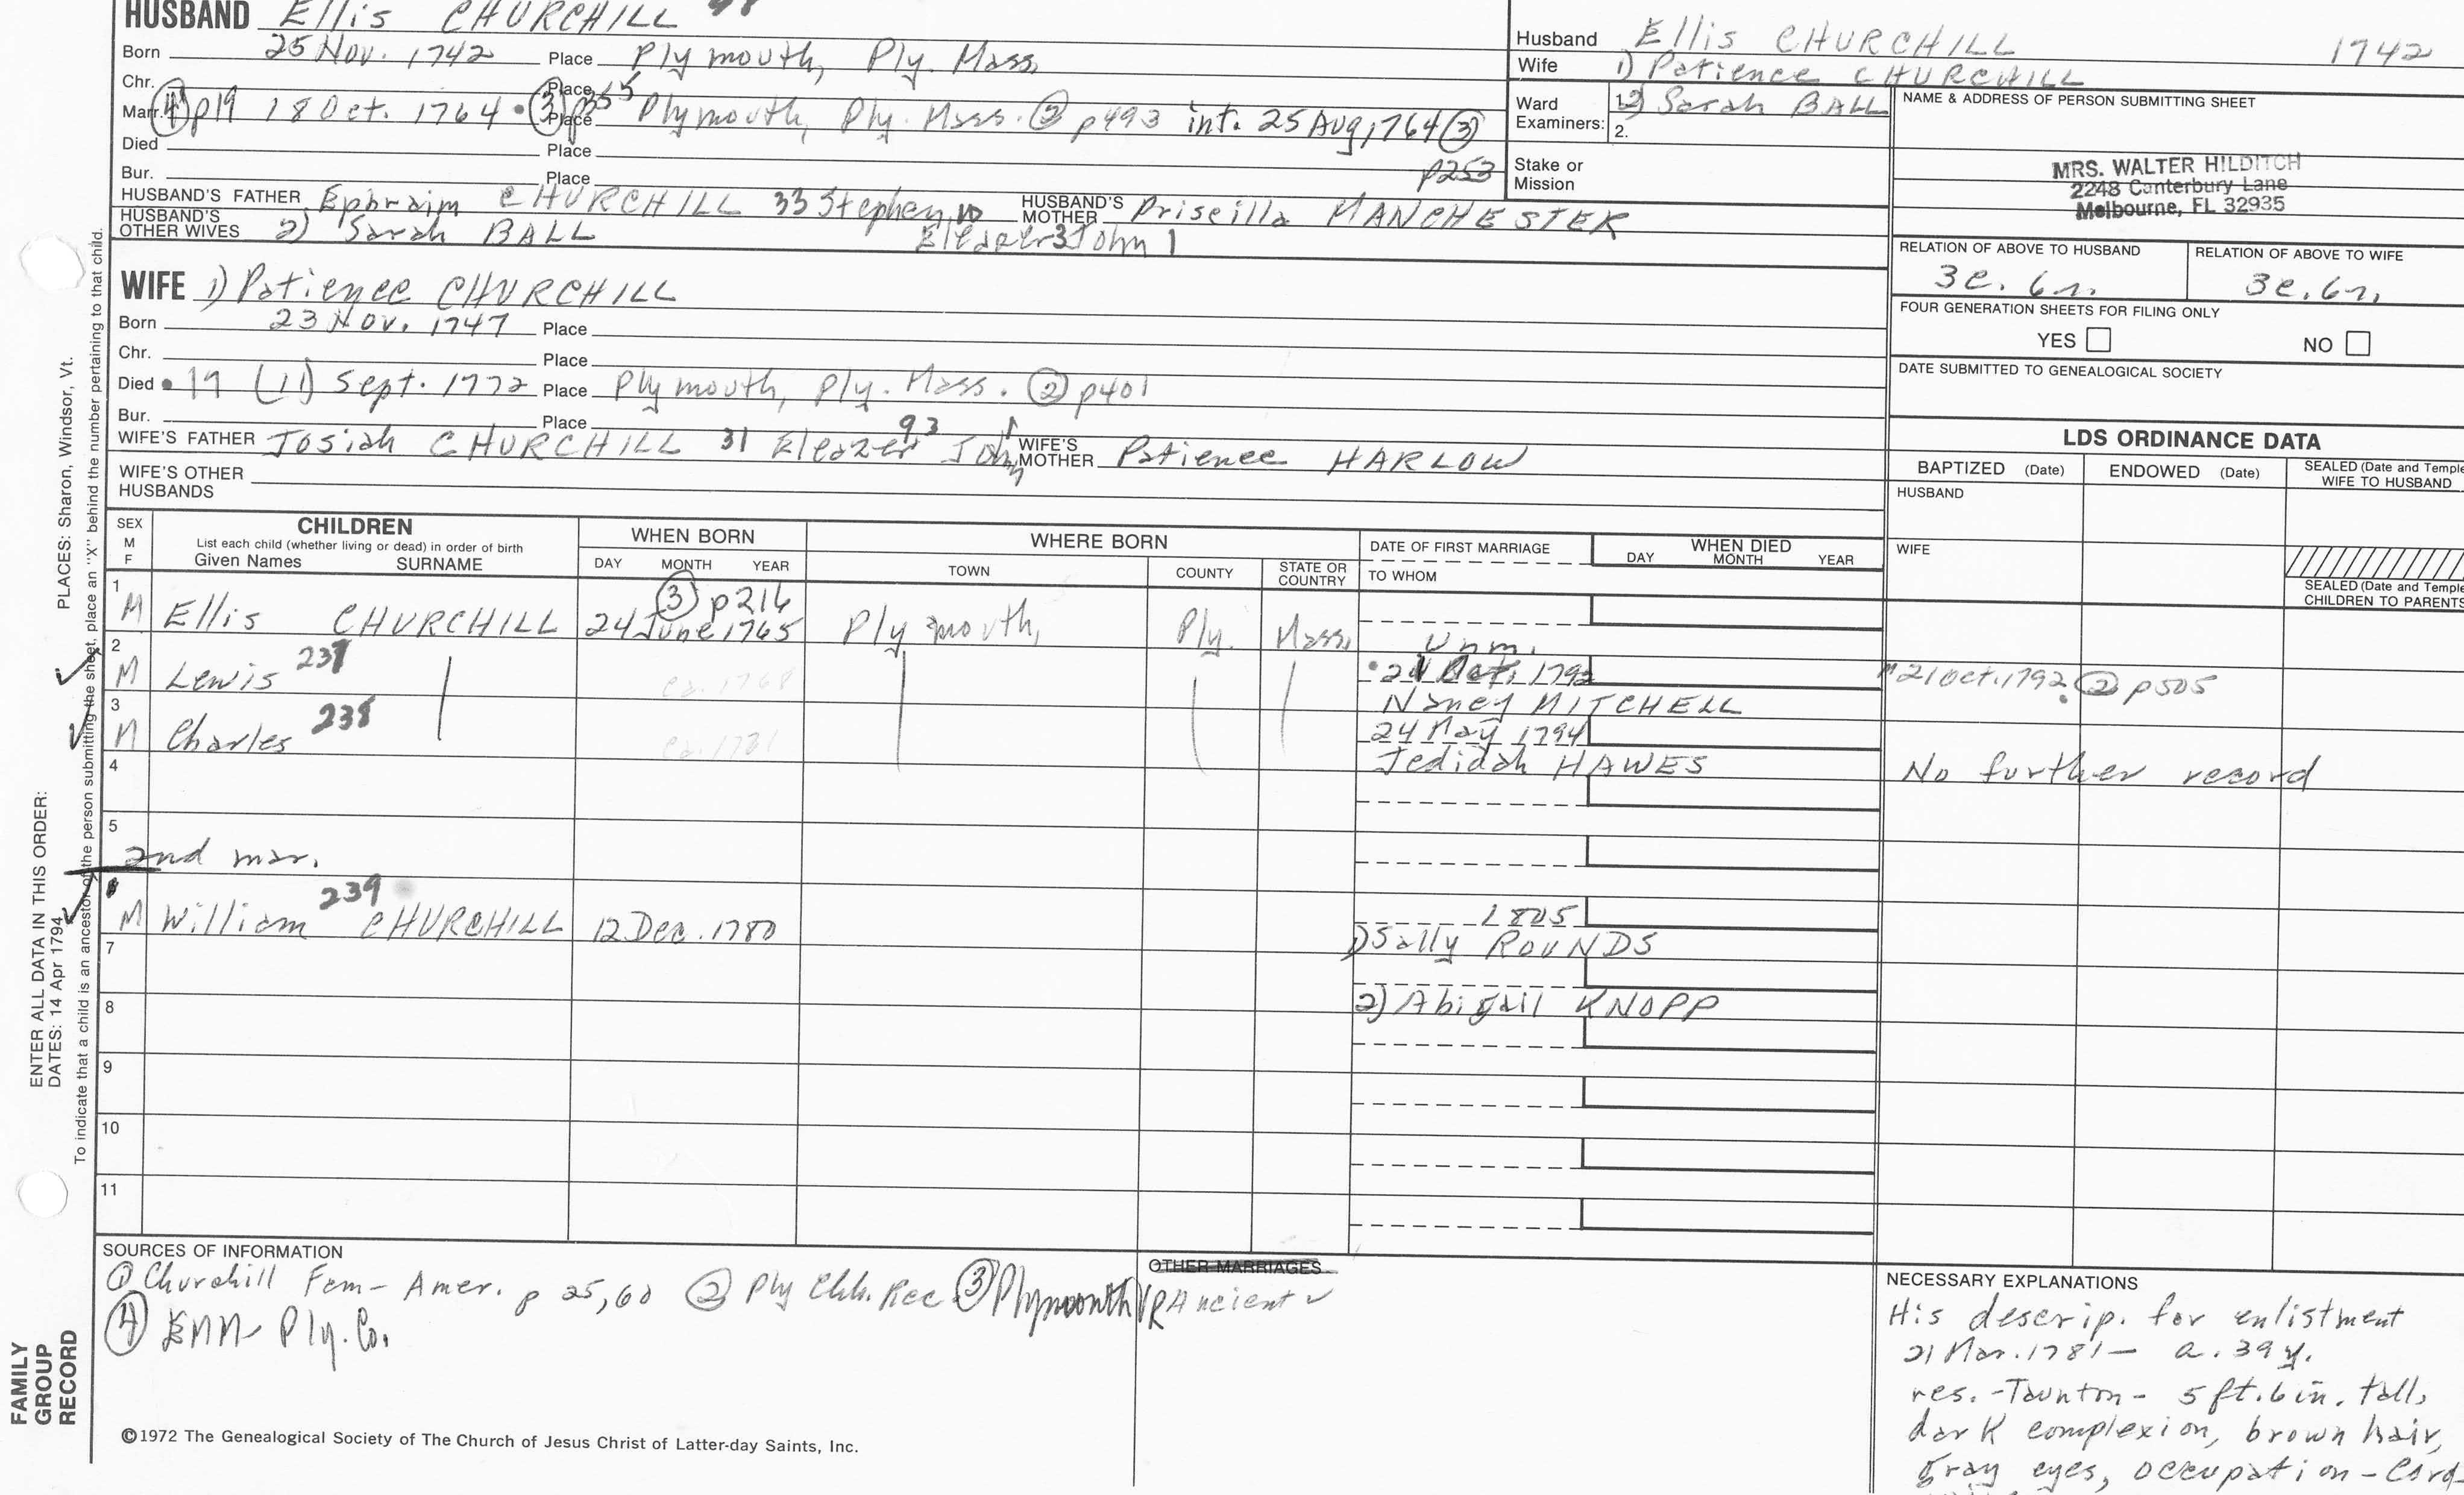 HUSBAND Ellis CHURCHILL
Born 25 Nov. 1742 Place Plymouth, Ply. Mass.
Chr. Place
Marr. (4) p19 18 Oct. 1764 • (3) p355 Place Plymouth, Ply. Mass. (2) p493 int. 25 Aug 1764 (3) p253
Died Place
Bur. Place
HUSBAND'S FATHER Ephraim CHURCHILL 33 Stephen 10 Eleazer 3 John 1 HUSBAND'S MOTHER Priscilla MANCHESTER
HUSBAND'S OTHER WIVES 2) Sarah BALL
Husband Ellis CHURCHILL 1742
Wife 1) Patience CHURCHILL
2) Sarah BALL
Ward Examiners: 1.
2.
Stake or Mission
NAME & ADDRESS OF PERSON SUBMITTING SHEET
MRS. WALTER HILDITCH
2248 Canterbury Lane
Melbourne, FL 32935
RELATION OF ABOVE TO HUSBAND RELATION OF ABOVE TO WIFE
3c. 6r. 3c. 6r.
FOUR GENERATION SHEETS FOR FILING ONLY
YES NO
DATE SUBMITTED TO GENEALOGICAL SOCIETY
WIFE 1) Patience CHURCHILL
Born 23 Nov. 1747 Place
Chr. Place
Died • 19 (11) Sept. 1772 Place Plymouth, Ply. Mass. (2) p401
Bur. Place
WIFE'S FATHER Josiah CHURCHILL 31 Eleazer 93 John 1 WIFE'S MOTHER Patience HARLOW
WIFE'S OTHER HUSBANDS
LDS ORDINANCE DATA
BAPTIZED (Date) ENDOWED (Date) SEALED (Date and Temple
WIFE TO HUSBAND
HUSBAND
WIFE
SEALED (Date and Temple
CHILDREN TO PARENTS
SEX M F CHILDREN
List each child (whether living or dead) in order of birth
Given Names SURNAME
WHEN BORN
DAY MONTH YEAR
WHERE BORN
TOWN COUNTY STATE OR COUNTRY
DATE OF FIRST MARRIAGE
TO WHOM
WHEN DIED
DAY MONTH YEAR
1 M Ellis CHURCHILL 24 June 1765 (3) p216 Plymouth, Ply. Mass. Unm.
2 M Lewis 237 ca. 1768 • 21 Oct. 1792 Nancy MITCHELL m 21 Oct. 1792 (2) p505
3 M Charles 238 ca. 1771 24 May 1794 Jedidah HAWES No further record
4
5
2nd mar.
6 M William 239 CHURCHILL 12 Dec. 1780 1805
7 1) Sally ROUNDS
8 2) Abigail KNOPP
9
10
11
SOURCES OF INFORMATION
(1) Churchill Fam - Amer. p 25, 60 (2) Ply Chh. Rec (3) Plymouth VR Ancient
(4) Ply. Co.
OTHER MARRIAGES
NECESSARY EXPLANATIONS
His descrip. for enlistment
21 Mar. 1781 - a. 39 y.
res. - Taunton - 5 ft. 6 in. tall,
dark complexion, brown hair,
gray eyes, occupation - Cord-
©1972 The Genealogical Society of The Church of Jesus Christ of Latter-day Saints, Inc.
PLACES: Sharon, Windsor, Vt.
ENTER ALL DATA IN THIS ORDER:
DATES: 14 Apr 1794
To indicate that a child is an ancestor of the person submitting the sheet, place an "X" behind the number pertaining to that child.
FAMILY
GROUP
RECORD